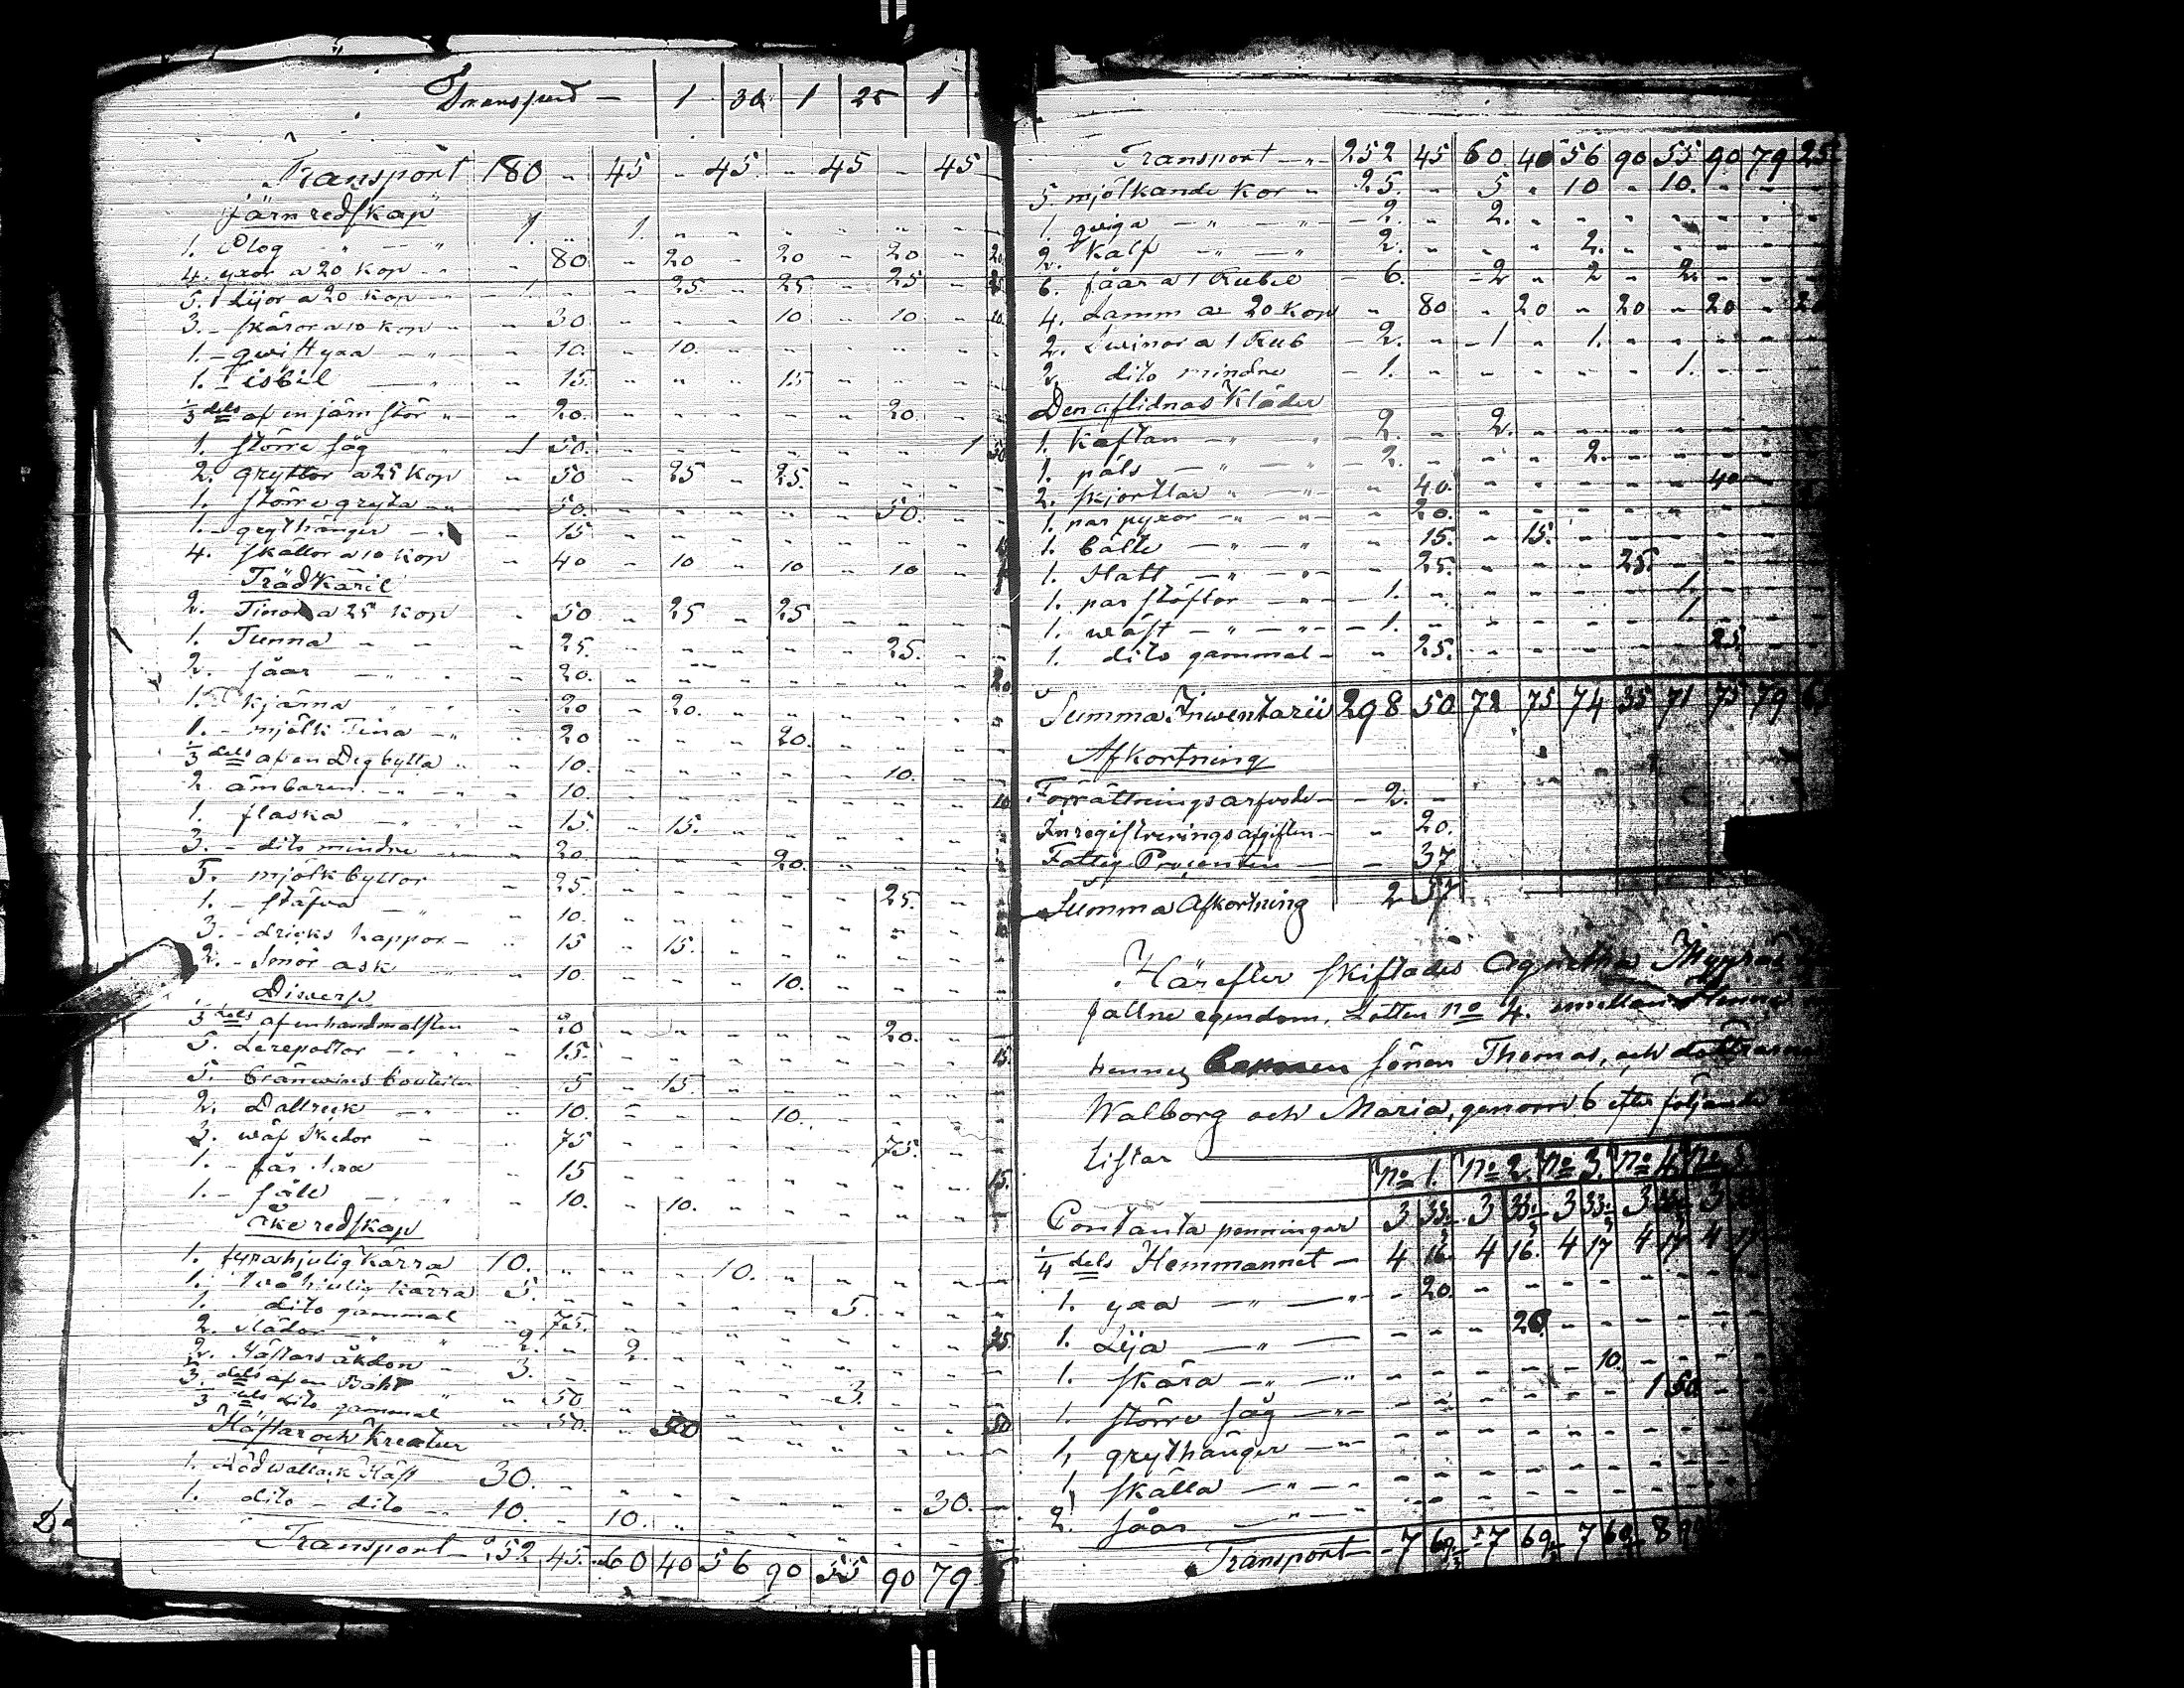 Transport — 1 30 1 25 1
Transport 180 - 45 - 45 - 45 - 45 -
Järnredskap
1. Plog - " — " 1. - 1. - - - - - - -
4. yxor a 20 kop - - - 80 - 20 - 20 - 20 - 20
5. Lijor a 20 kop - - 1 - - 25 - 25 - 25 - 25
3. - skäror a 10 kop - - 30 - - - 10 - 10 - 10
1. - qwistyxa - " - 10. - 10. - - - - - -
1. - isbil — " - 15. - - - 15 - - - -
1/3 dels af en järnstör " - 20. - - - - - 20. - -
1. större såg 1 50. - - - - - - 1 50
2. gryttor a 25 kop - 50 - 25 - 25. - - - -
1. större gryta - - - 50. - - - - - 50. - -
1. - grythänger - - 15 - - - - - - -
4. skållor a 10 kop - 40 - 10 - 10 - 10 -
Trädkäril
2. Tinor a 25 kop - 50 - 25 - 25 - - - -
1. Tunna - - - 25. - - - - - 25. - -
2. såar - " - - 20. - - - - - - - 20.
1. kjärna - " - - 20 - 20. - - - - - -
1. - mjölk Tina - " - 20 - - - 20. - - - -
1/3 dels af en Degbytta " - 10. - - - - - 10. - -
2. ämbaren - " - " - 10. - - - - - - - 10
1. flaska - " - " - 15 - 15. - - - - - -
3. - dito mindre - - - 20. - - - 20. - - - -
5. mjölkbyttor - 25. - - - - - 25. - -
1. - stäfva - " - 10. - - - - - - -
3. - dricks kappor - - 15 - 15. - - - - - -
2. - Smör ask " - 10. - - - 10. - - - -
Diwerse
1/3 dels af en handmalsten - 20 - - - - - 20. - -
5. Lerepottor - " - - 15. - - - - - - - 15
5. bränwins bouteiler - 5 - 15 - - - - - -
2. Dallrick - " - 10. - - - 10. - - - -
3. wäf Skedor - - 75 - - - - - 75. - -
1. - 15 - - - - - - - 15.
1. - såll - " - 10. - 10. - - - - - -
Åkeredskap
1. fyrahjulig kärra 10. - - - 10. - - - - -
1. twåhjulig kärra 5. - - - - - 5. - - -
1. dito gammal - 75. - - - - - - - 75
2. slädor - " " 2. - 2. - - - - - - -
2. Hästars åkdon - 3. - - - - - 3. - - -
1/3 dels af en Båht " - 50 - - - - - - - 50
1/3 dels dito gammal - 50. - 50 - - - - - -
Hästar och Kreatur
1. Rödwallack Häst 30. - - - - - - - 30. -
1. dito - dito - 10. - 10. - - - - - - -
Transport - 252 45. 60 40 56 90 55 90 79
Transport - " - 252 45 60 40 56 90 55 90 79 25
5. mjölkande kor - 25. - 5 - 10 - 10. - - -
1. qwiga - " - " - 2. - 2. - - - - - - -
2. Kalf - " - " 2. - - - 2. - - - - -
6. fåar a 1 Rubel - 6. - 2 - 2 - 2. - - -
4. Lamm a 20 kop - 80 - 20 - 20 - 20 - 20
2. Swinor a 1 Rub - 2. - - 1 - 1. - - - - -
2. dito mindre - 1. - - - - - 1. - - -
Den aflidnas Kläder
1. Kaftan - " " - 2. - 2. - - - - - - -
1. päls - " - " - 2. - - - 2. - - - - -
2. skjorttar " - " - 40. - - - - - 40 - -
1. par pyxor - " " - 20. - - - - - - - -
1. bälte - " - " - 15. - 15. - - - - - -
1. Hatt - " - " - 25. - - - 25. - - - -
1. par stöflor - " - 1. - - - - - 1. - - -
1. wäst - " - " - 1. - - - - - 1. - - -
1. dito gammal - - 25. - - - - - 25. - -
Summa Inwentarii 298 50 72 75 74 35 71 75 79
Afkortning
Förrättningsarfvode - - 2. -
Inregistreringsafgiften - - 20.
Fattig Procenten - - 37
Summa Afkortning 2 57
Härefter skiftades Agnetha
fallne egendom, Lotten no 4. emellan
hennes sönen Thomas, och
Walborg och Maria, genom 6 efter följande
listar
no 1. no 2. no 3. no 4. no
Contanta penningar 3 33 1/3 3 33 1/3 3 33 1/3 3 33 1/3 3
1/4 dels Hemmannet - 4 16. 4 16. 4 17 4 17 4 17
1. yxa - " - " - 20. - - - - - - -
1. Lija - " - - - - 20. - - - - -
1. skära - " - " - - - - - 10. - - -
1. större såg - " - - - - - - - 1 50 - -
1. grythänger - " - - - - - - - -
1. skålla - " - - - - - - - - -
2. såar - " - - - - - - - - -
Transport - 7 69 1/3 7 69 1/3 7 60 8